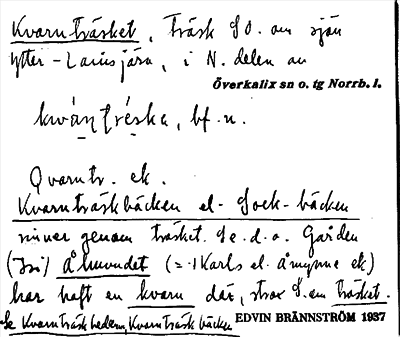 Kvarnträsket, Träsk SO. om sjön
Ytter-Lansjärv, i N. delen av
Överkalix sn o. tg Norrb. l.
bf. n.
Qvarntr. ek.
Kvarnträskbäcken el. Sock-bäcken
rinner genom träsket. Se d. o. Gården
Åmundet (= Karls el. Åmynne ek)
har haft en kvarn där, strax S. om träsket.
Se Kvarnträskheden, Kvarnträskbäcken
EDVIN BRÄNNSTRÖM 1937